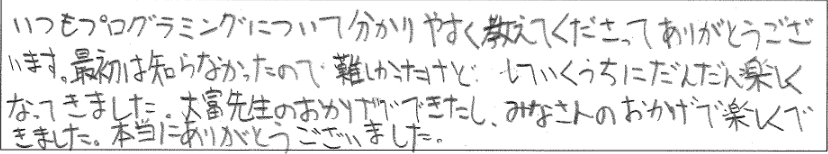 いつもプログラミングについて分かりやすく教えてくださってありがとうござ
います。最初は知らなかったので難しかったけど、していくうちにだんだん楽しく
なってきました。大富先生のおかげでできたし、みなさんのおかげで楽しくで
きました。本当にありがとうございました。